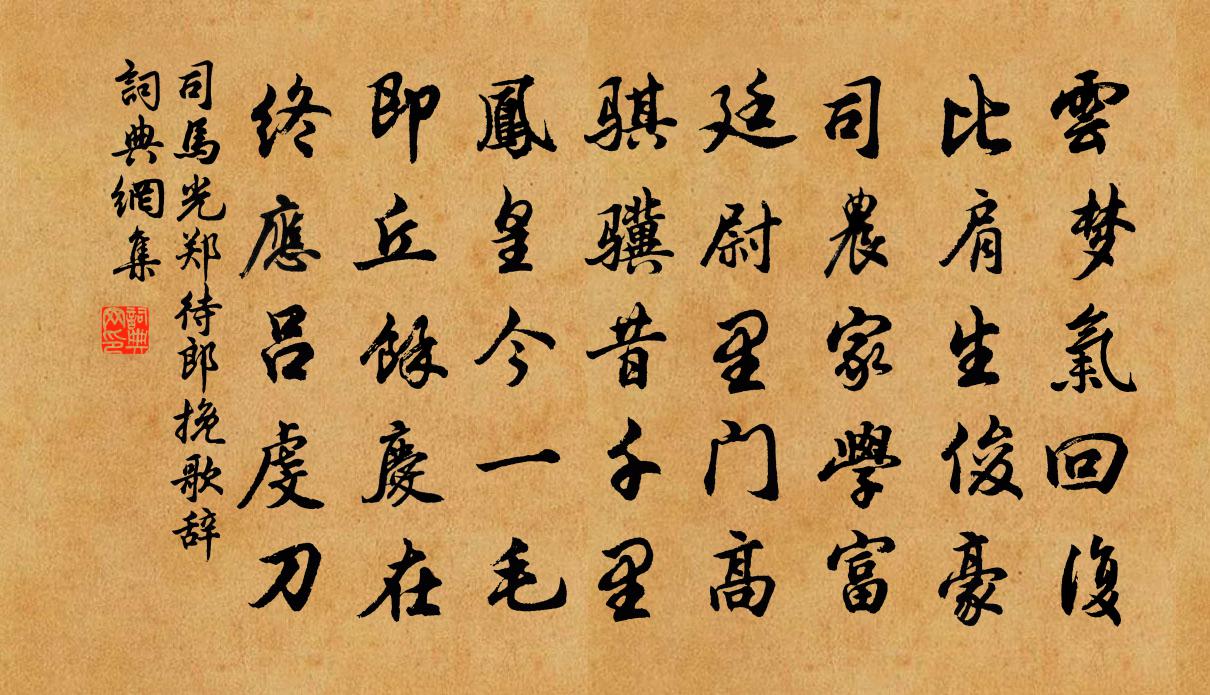 雲梦氣回復
比肩生俊豪
司農家學富
廷尉里门高
骐骥昔千里
鳳皇今一毛
即丘餘慶在
終應呂虔刀
司馬光郑待郎挽歌辞
詞典網集
詞典网印